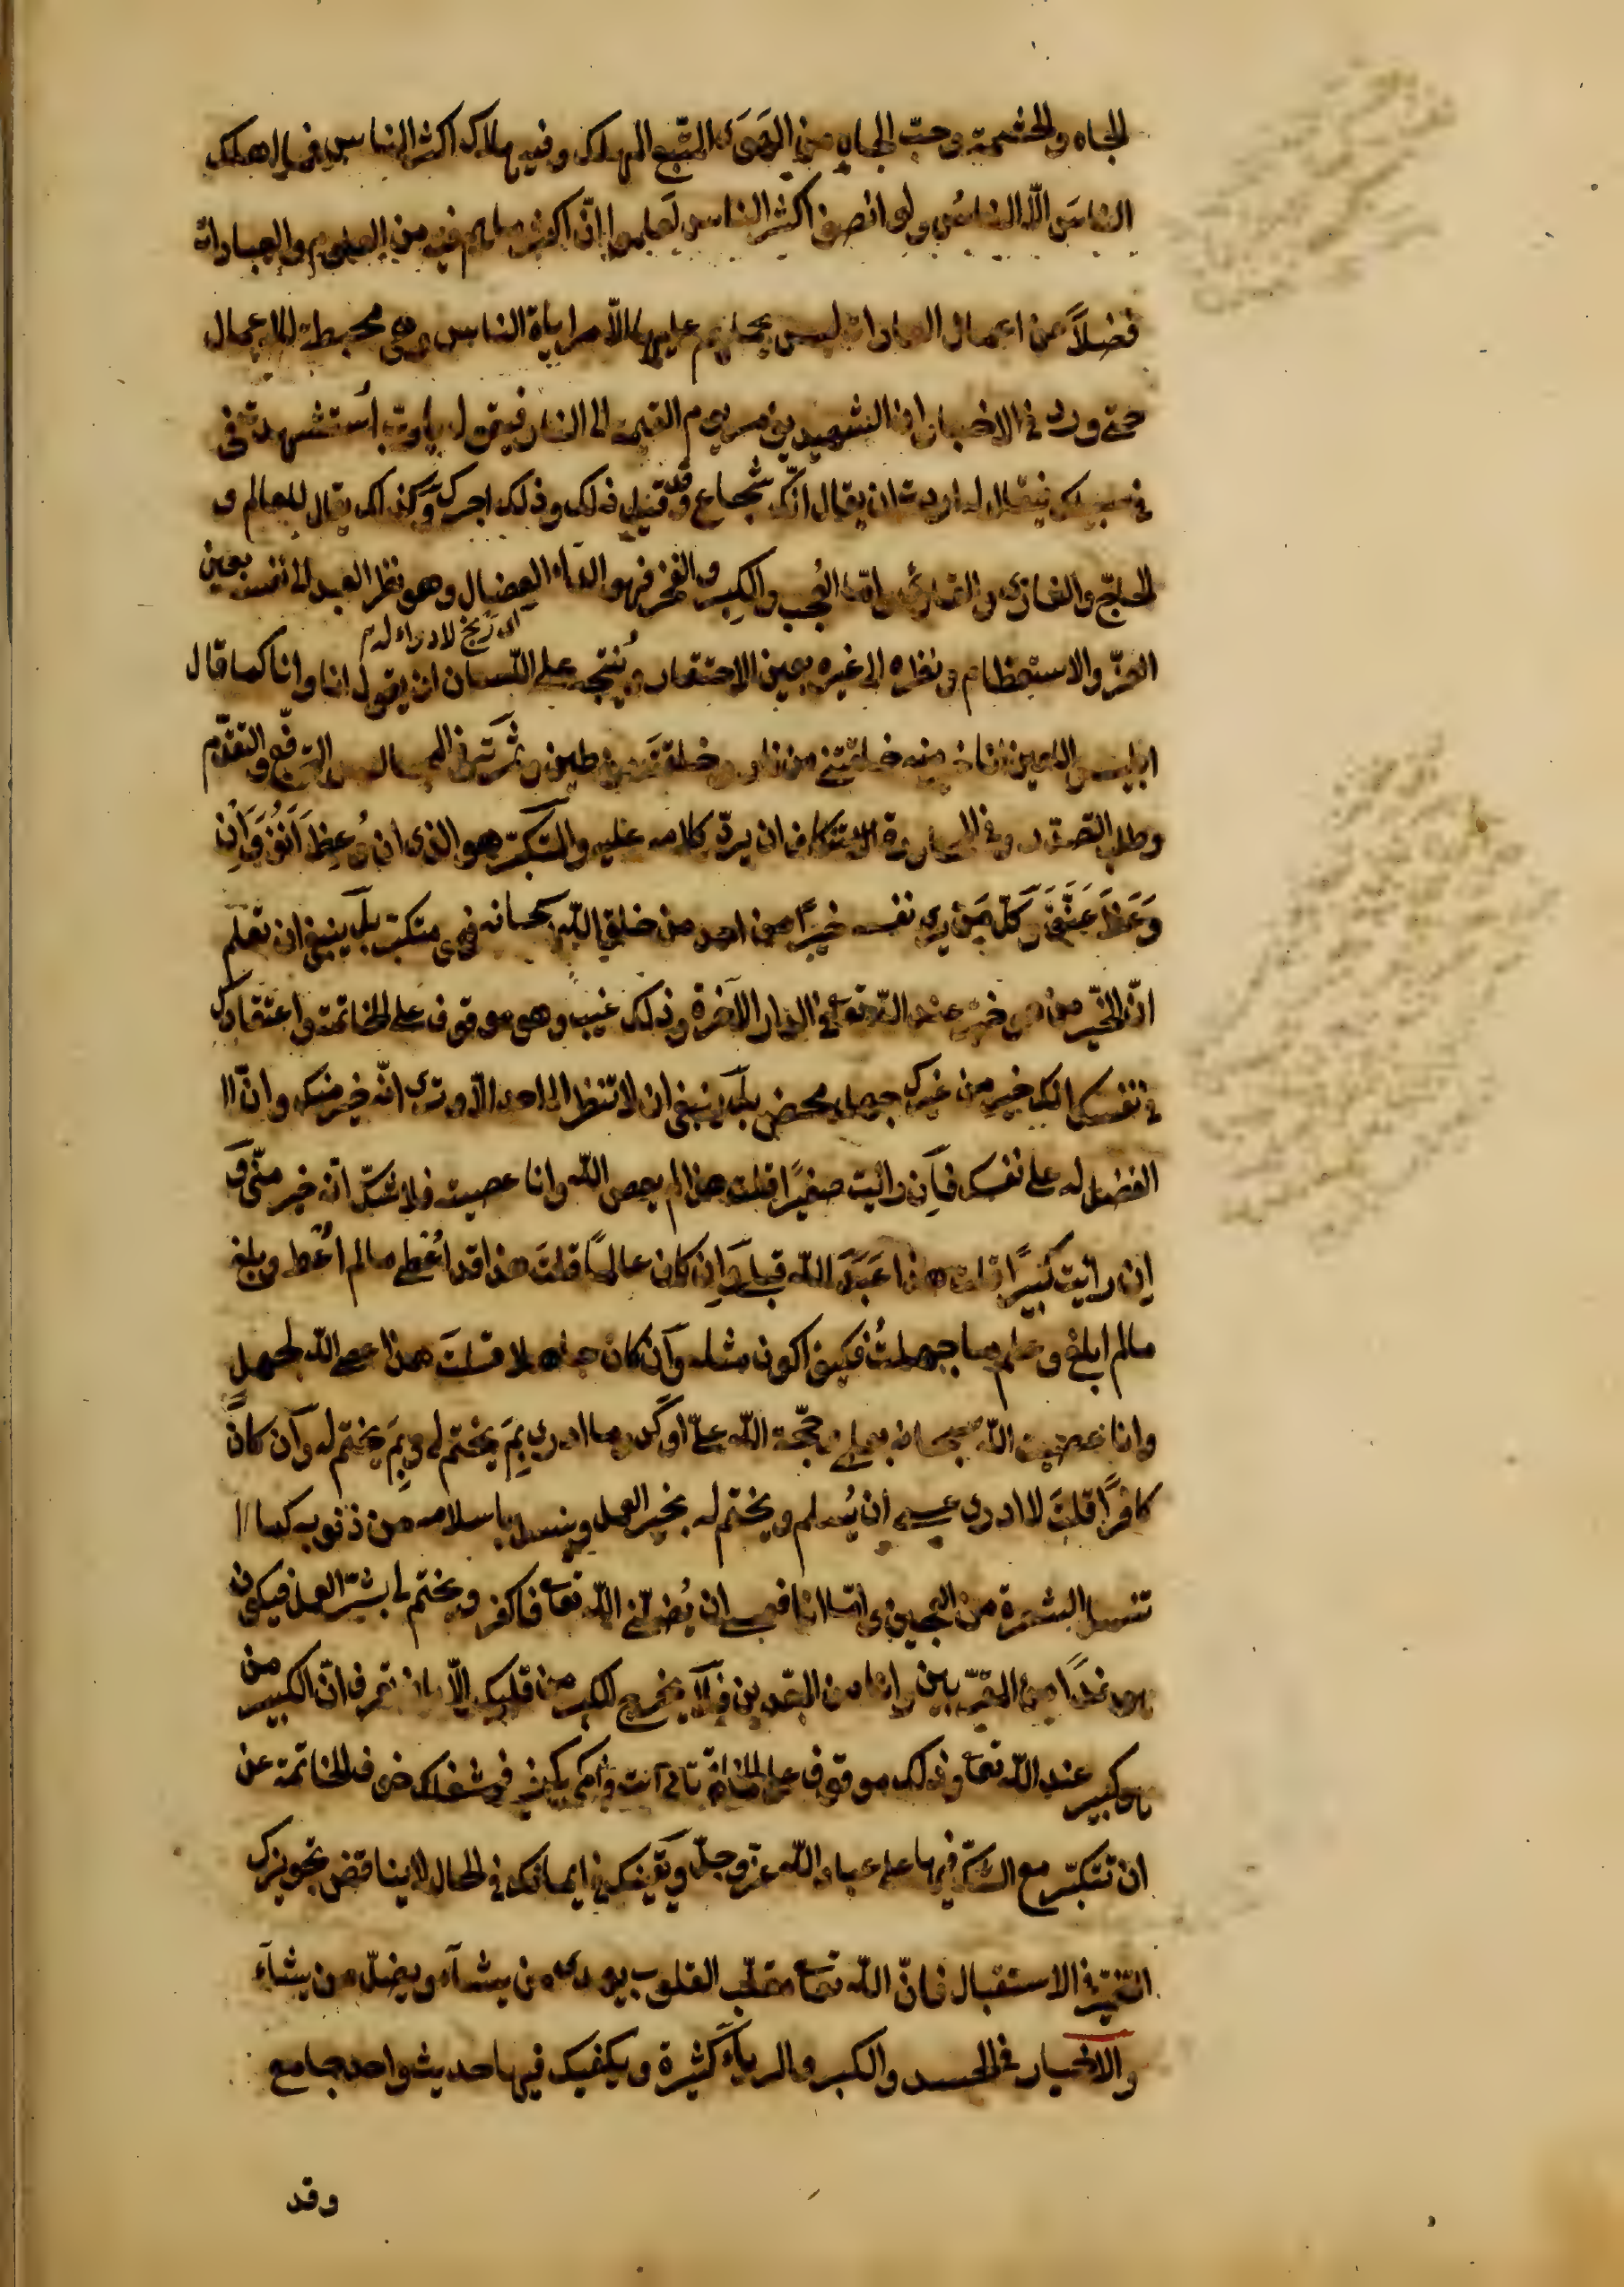 الجاه والحشمة وحبّ الجاه من الهَوَى المتّبع المهلك وفيه هلاك اكثر الناس فما اهلك
الناسَ الّا الناسُ ولو انصف اكثر الناس لعلموا انّ اكثر ما هم فيه من العلوم والعبادات
فضلاً عن اعمال العادات ليس يحملهم عليها الّا مراياة الناس وهى محبطة للاعمال
حتى ورد فى الاخبار ان الشهيد يؤمر يوم القيمة الى النار فيقول يا ربّ أستشهدت فى
فى سبيلك فيقال له اردت ان يقال انّك شجاع وقد قيل ذلك وذلك اجرك وكذلك يقال للعالم و
الحاجّ والغازى والقارئ وامّا العُجب والكبر والفخر فهو الداء العضال وهو نظر العبد الى نفسه بعين
العزّ والاستعظام ونظره الى غيره بعين الاحتقار ويُنتجه على اللسان ان يقول انا وانا كما قال
ابليس اللعين انا خير منه خلقتنى من نار وخلقته من طين وثمرته فى المجالس الترفّع والتقدّم
وطلب التصدّر وفى المحاورة الاستنكاف ان يردّ كلامه عليه والمتكبّر هو الذى ان وُعِظَ اَنِفَ وَاِن
وَعَظَ عَنَّفَ وَكلّ مَن يرى نفسه خيرًا من احد من خلق الله سبحانه فهو متكبّر بل ينبغى ان تعلم
انّ الخيّر من هو خير عند الله تعا فى الدار الآخرة وذلك غيب وهو موقوف على الخاتمة واعتقادك
فى نفسك انك خير من غيرك جهل محض بل ينبغى ان لا تنظر الى احد الّا وترى انّه خير منك وانّ ا
الفضل له على نفسك فاِن رأيت صغيرًا قلت هذا لم يعص الله وانا عصيته فلا شكّ انّه خير منّى و
اِن رأيت كبيرًا قلت هذا عَبَدَ الله قبلى وَاِن كان عالمًا قلتَ هذا قد اُعْطى ما لم اُعْط وبلغ
مالم ابلغ وعلم ما جهلتُ فكيف اكون مثله وان كان جاهلا قلتَ هذا عصى الله بجهل
وانا عصيت الله سبحانه بعلم فحجّة الله علىّ اوكد وما ادرى بِمَ يختم لى وبِمَ يختم له وان كان
كافرًا قلتَ لا ادرى عسى ان يُسلم ويختم له بخير العمل وينسل باسلامه من ذنوبه كما ا
تنسل الشعرة من العجين وامّا انا فعسى ان يُضلّنى الله تعا فاكفر ويختم لى بشرّ العمل فيكون
هو غدًا من المقرّبين وانا من المبعدين فلا يخرج الكبر من قلبك الّا بان تعرف انّ الكبير من
هو كبير عند الله تعا وذلك موقوف على الخاتمة فشغلك خوف الخاتمة عن
ان تتكبّر مع الشكّ فيها على عباد الله عزّ وجلّ ويقينك فى ايمانك فى الحال لا يناقض تجويزك
التغيّر فى الاستقبال فانّ الله تعا مقلّب القلوب يهدى من يشآء ويضلّ من يشآء
والاخبار فى الحسد والكبر والريآء كثيرة ويكفيك فيها حديث واحد جامع
وقد